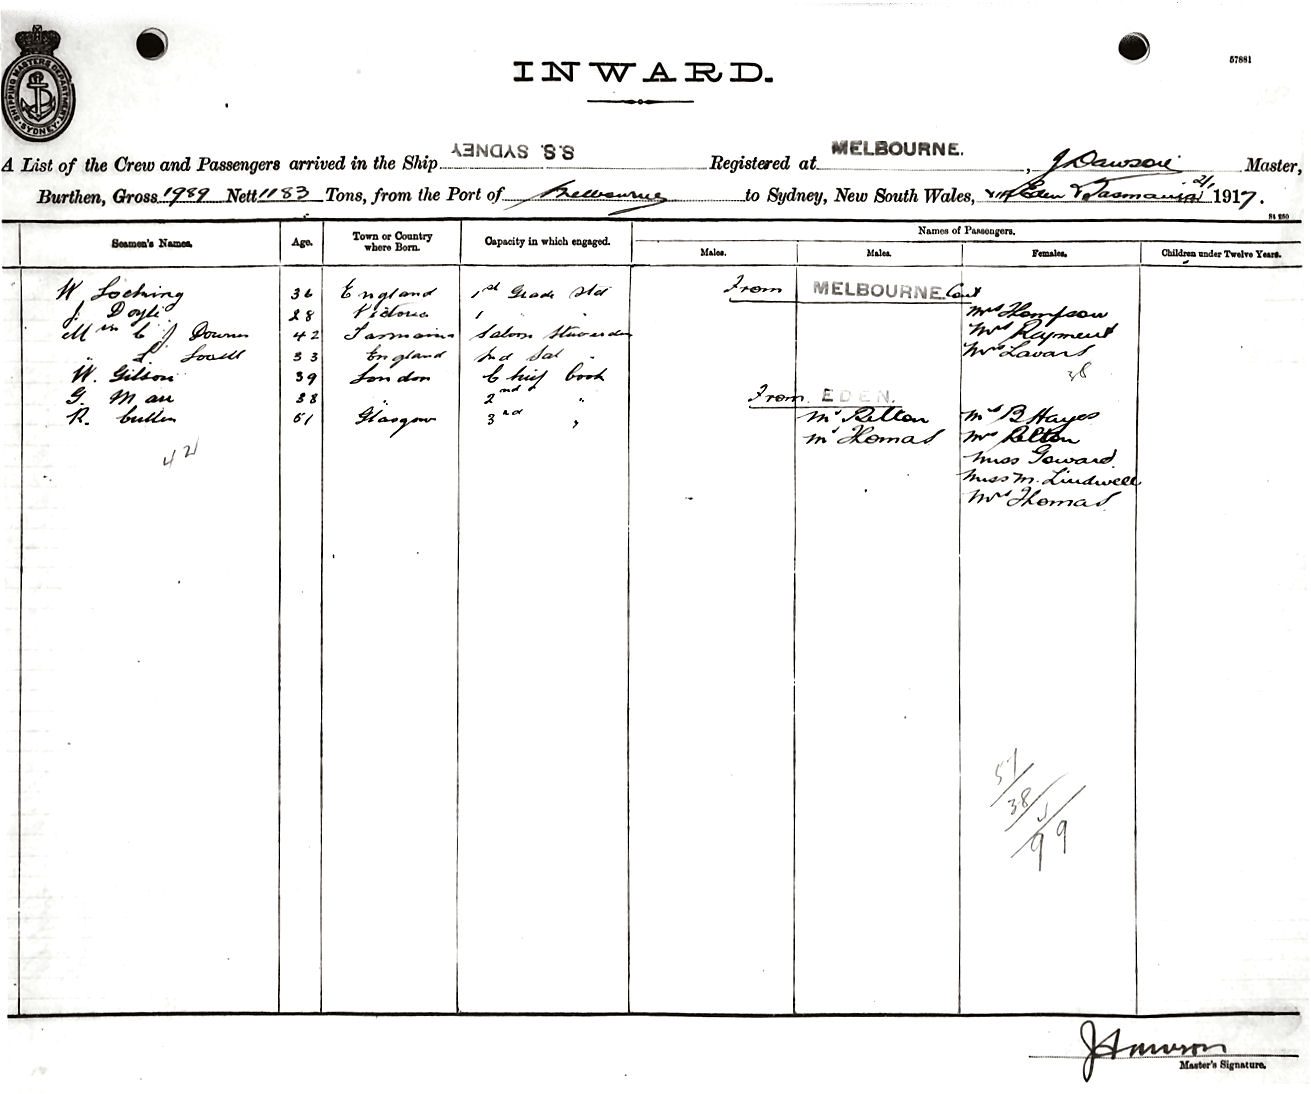 SHIPPING MASTERS DEPARTMENT SYDNEY
INWARD.
57881
A List of the Crew and Passengers arrived in the Ship S.S. SYDNEY Registered at MELBOURNE. , J Dawson Master,
Burthen, Gross 1989 Nett 1183 Tons, from the Port of Melbourne to Sydney, New South Wales, Eden & Tasmania 1917.
Seamen's Names. Age. Town or Country where Born. Capacity in which engaged. Names of Passengers.
Males. Males. Females. Children under Twelve Years.
W 36 England 1st Grade Std From MELBOURNE. Cont
J Doyle 28 Victoria " " Mrs Thompson
Mrs C J Downs 42 Tasmania Saloon Stewardess Mrs Rayment
" 33 England 2nd Sal " Mrs
W. Gilson 39 London Chief Cook 38
G. Marr 38 " 2nd " From EDEN.
R. Cullen 51 Glasgow 3rd " Mr Relton Mrs B Hayes
Mr Thomas Mrs Relton
42 Miss Goward
Miss M. Lindwell
Mrs Thomas
51
38
99
J Dawson
Master's Signature.